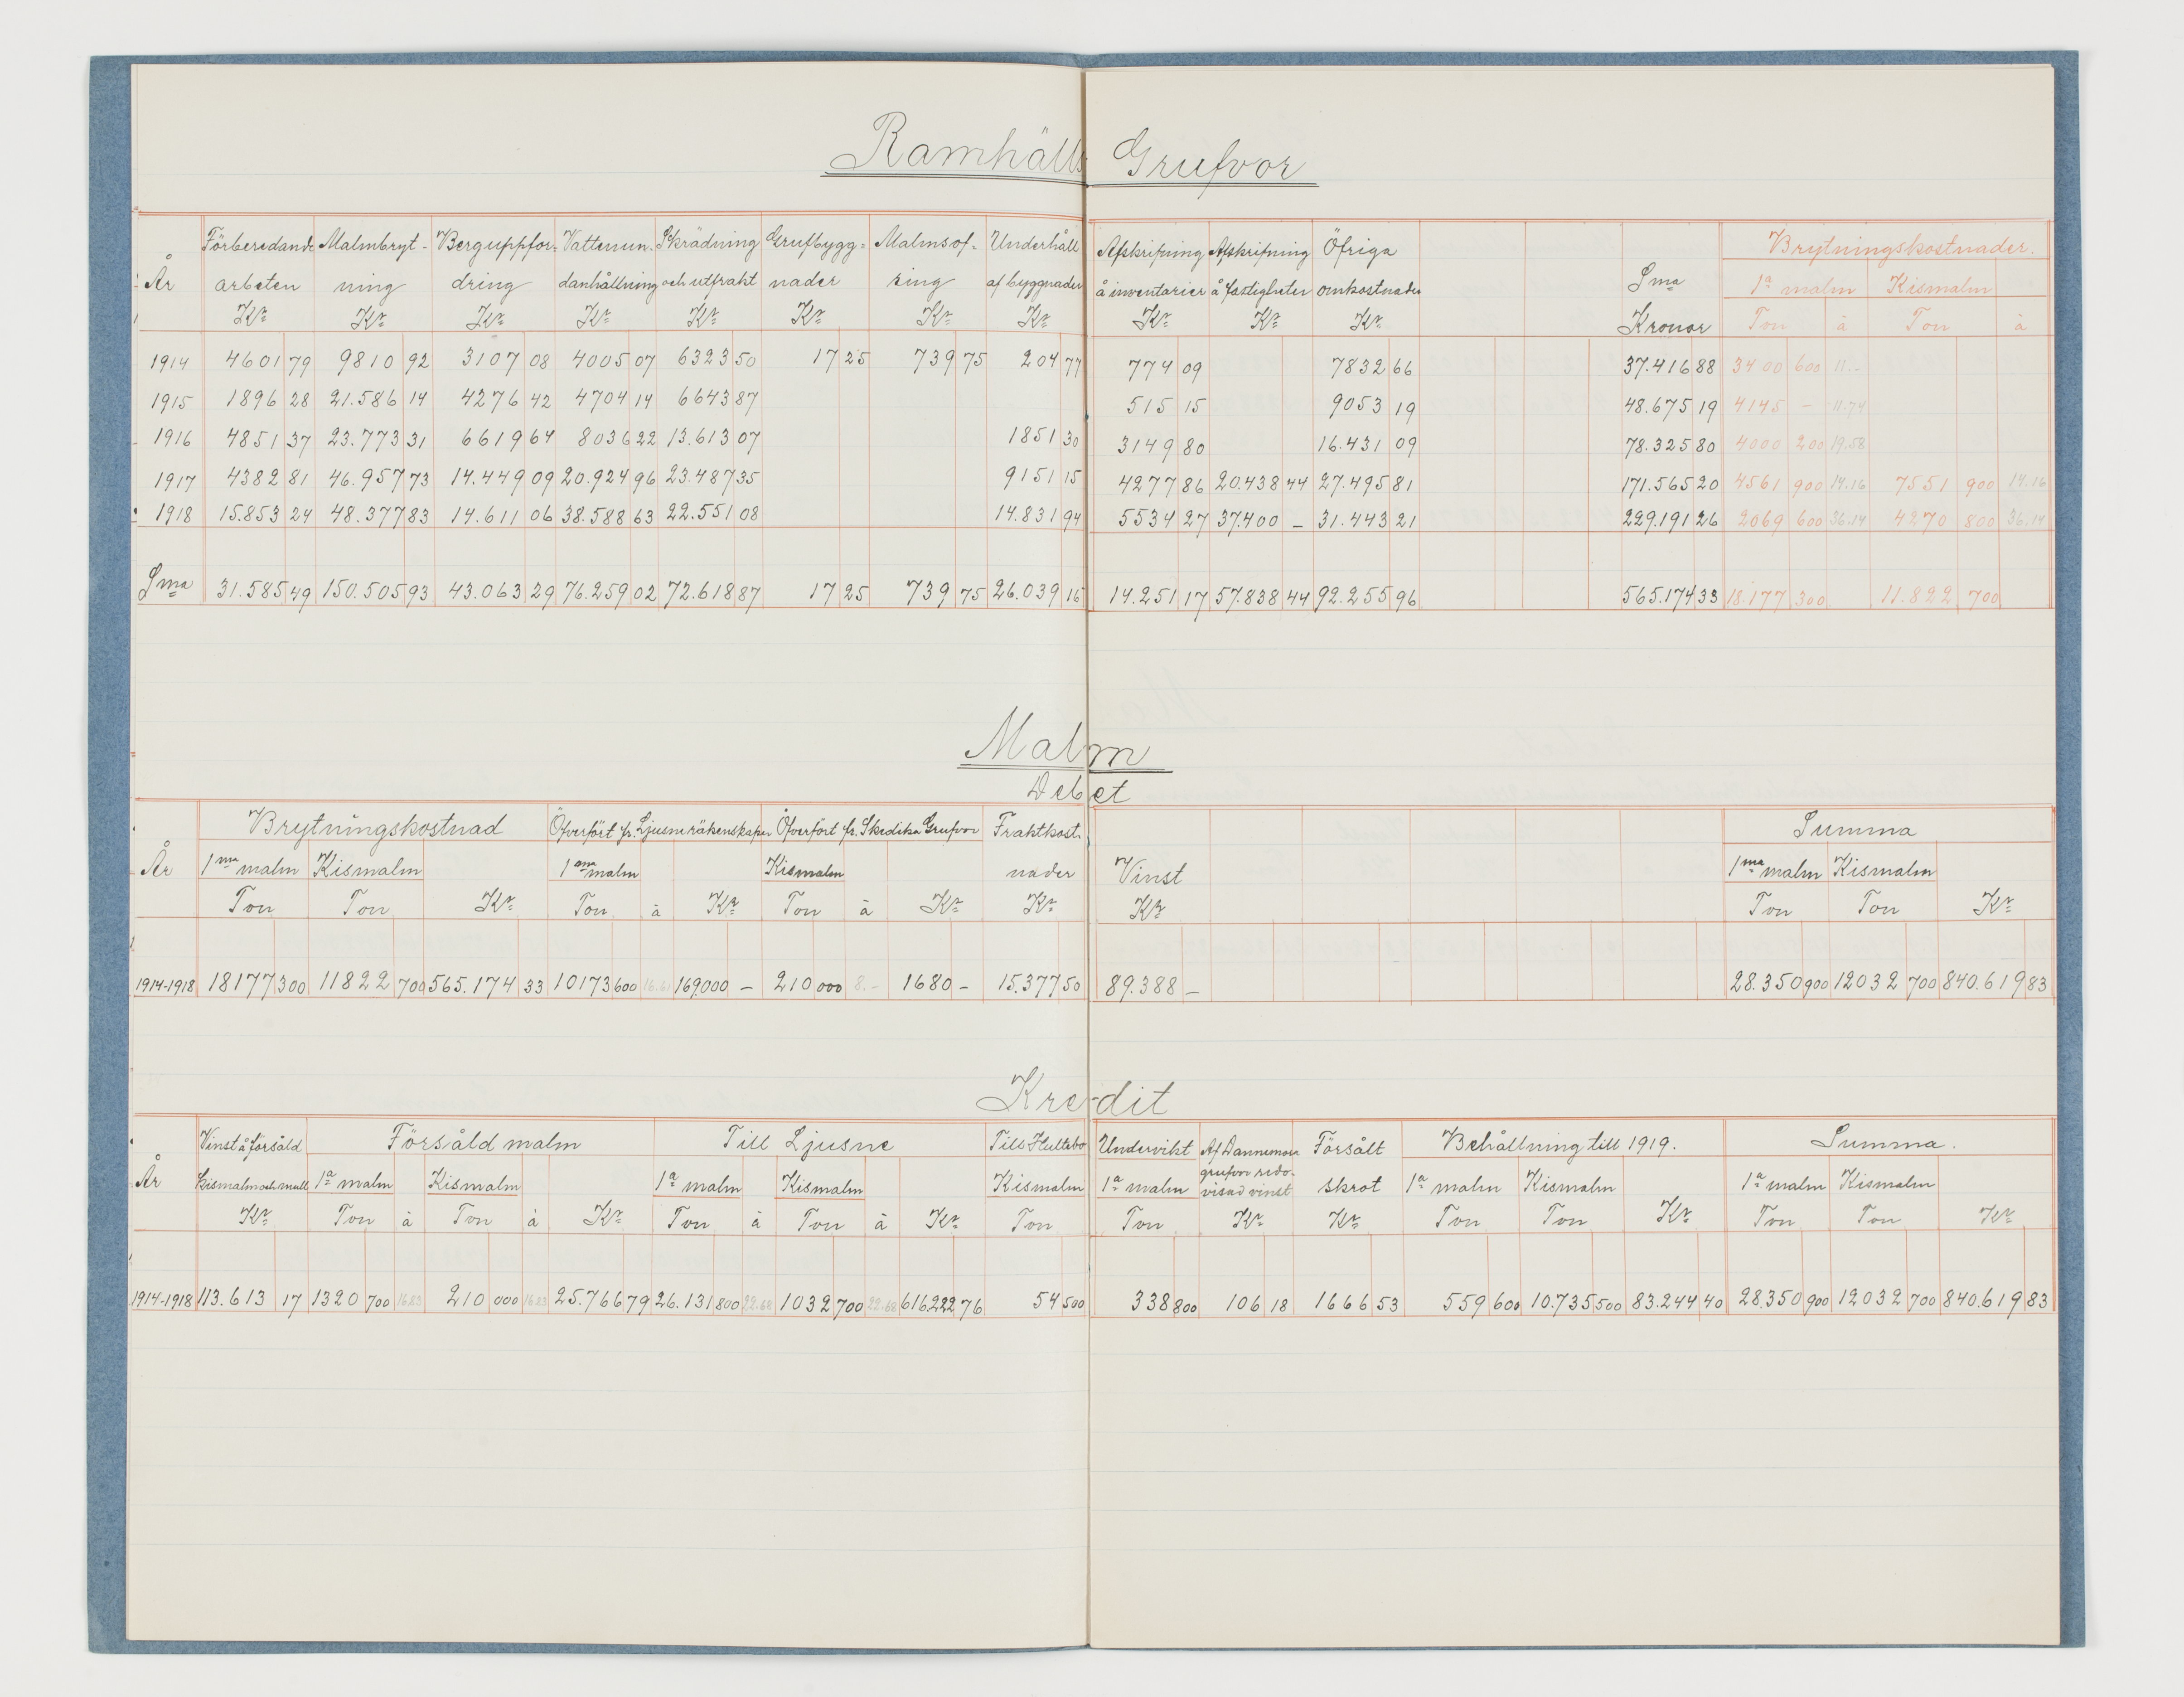 Ramhälls Grufvor
År Förberedande arbeten Kr Malmbryt- ning Kr Berguppfor- dring Kr Vattenun- danhållning Kr Skrädning och utfrakt Kr Grufbygg- nader Kr Kr Underhåll af byggnader Kr Afskrifning å inventarier Kr Afskrifning å fastigheter Kr Öfriga omkostnader Kr Sma Kronor Brytningskostnader. 1a malm Ton à Kismalm Ton à
1914 4601 79 9810 92 3107 08 4005 07 6323 50 17 25 739 75 204 77 774 09 7832 66 37.416 88 3400 600 11.-
1915 1896 28 21.586 14 4276 42 4704 14 6643 87 515 15 9053 19 48.675 19 4145 – 11.74
1916 4851 37 23.773 31 6619 64 8036 22 13.613 07 1851 30 3149 80 16.431 09 78.325 80 4000 200 19.58
1917 4382 81 46.957 73 14.449 09 20.924 96 23.487 35 9151 15 4277 86 20.438 44 27.495 81 171.565 20 4561 900 14.16 7551 900 14.16
1918 15.853 24 48.377 83 14.611 06 38.588 63 22.551 08 14.831 94 5534 27 37.400 – 31.443 21 229.191 26 2069 600 36.14 4270 800 36.14
Sma 31.585 49 150.505 93 43.063 29 76.259 02 72.618 87 17 25 739 75 26.039 16 14.251 17 57.838 44 92.255 96 565.174 33 18.177 300 11.822 700
Malm
Debet
Brytningskostnad Öfverfört fr. Ljusne räkenskaper Öfverfört fr. Skedika Grufvor Fraktkost- Summa
År 1ma malm Kismalm 1ma malm Kismalm nader Vinst 1ma malm Kismalm
Ton Ton Kr Ton à Kr Ton à Kr Kr Kr Ton Ton Kr
1914-1918 18177 300 11822 700 565.174 33 10173 600 16.61 169.000 – 210 000 8.- 1680 – 15.377 50 89.388 – 28.350 900 12032 700 840.619 83
Kredit
Vinst å försåld Försåld malm Till Ljusne Till Hultebo Undervikt Af Dannemora Försålt Behållning till 1919. Summa.
År kismalm och mull 1a malm Kismalm 1a malm Kismalm Kismalm 1a malm grufvor redo- visad vinst skrot 1a malm Kismalm 1a malm Kismalm
Kr Ton à Ton à Kr Ton à Ton à Kr Ton Ton Kr Kr Ton Ton Kr Ton Ton Kr
1914-1918 113.613 17 1320 700 16.83 210 000 16.83 25.766 79 26.131 800 22.68 1032 700 22.68 616.222 76 54 500 338 800 106 18 1666 53 559 600 10.735 500 83.244 40 28.350 900 12032 700 840.619 83